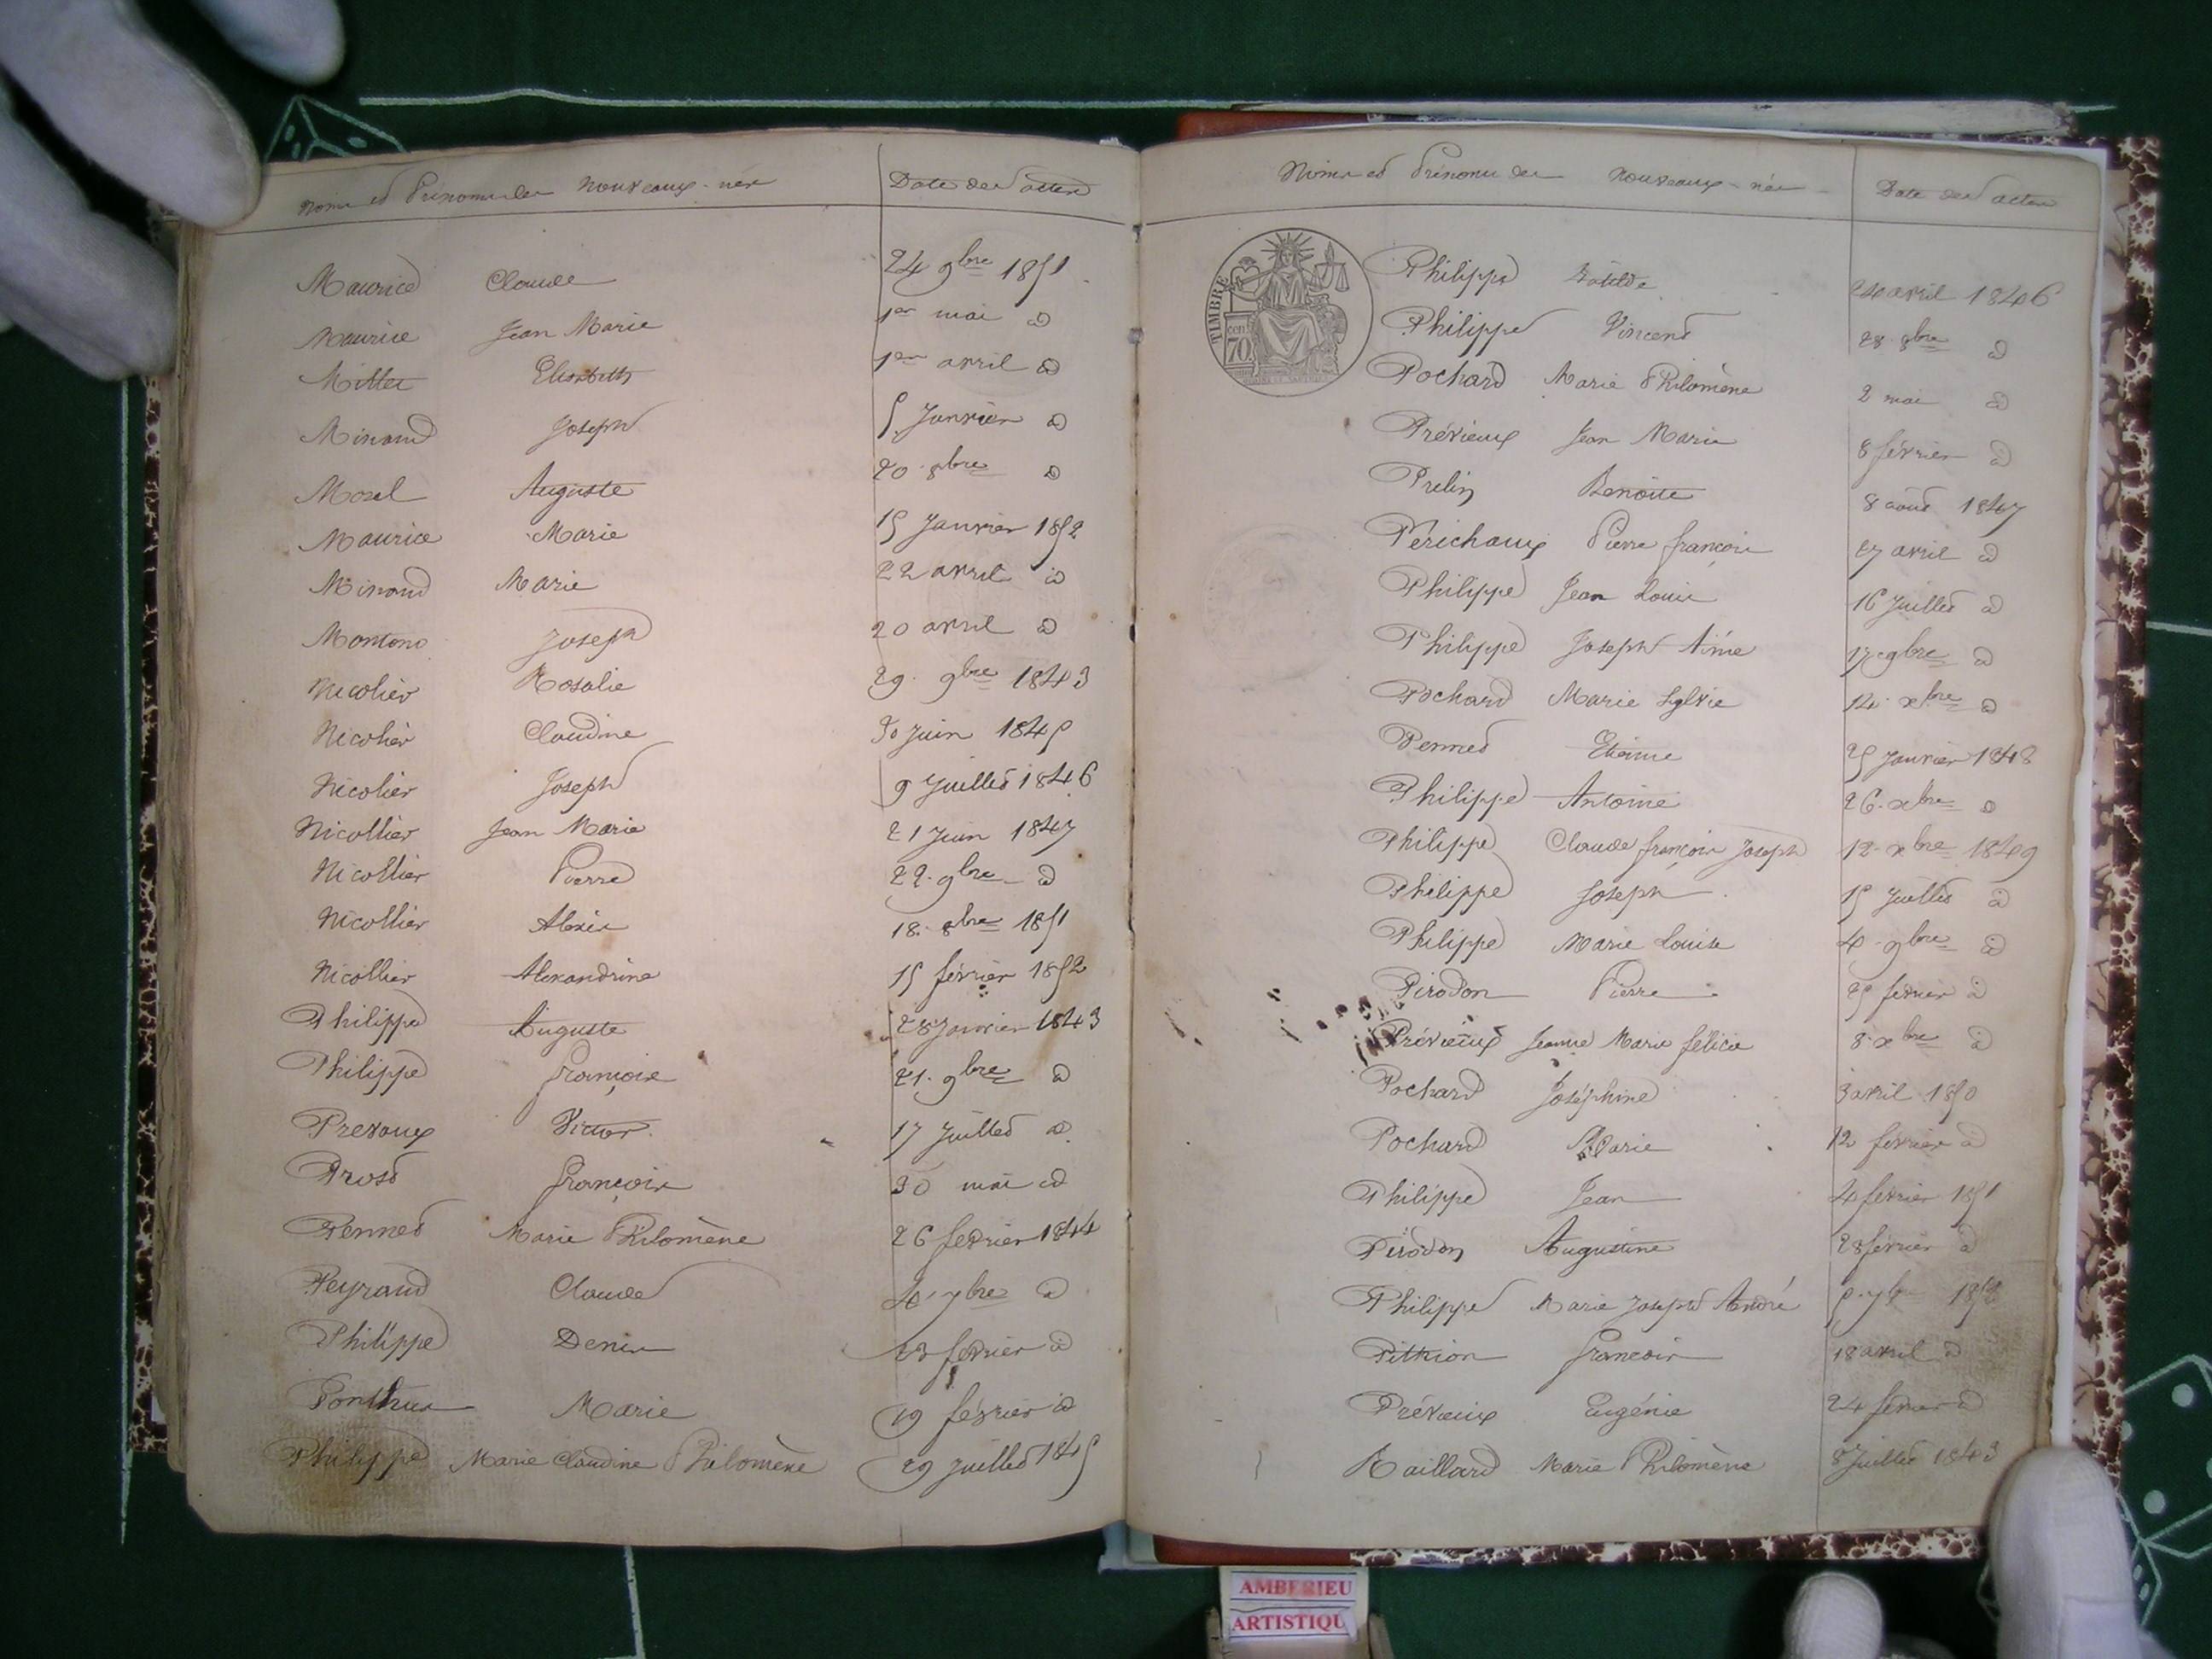 Noms et Prénoms des Nouveaux-nés Date des actes
Maurice Claude 24 9bre 1851
Maurice Jean Marie 1er mai d
Millet Elisabeth 1er avril d
Minand Joseph 5 Janvier d
Morel Auguste 20 8bre d
Maurice Marie 15 Janvier 1852
Minand Marie 22 avril d
Montano Joseph 20 avril d
Nicolier Rosalie 29 9bre 1843
Nicolier Claudine 30 Juin 1845
Nicolier Joseph 9 Juillet 1846
Nicollier Jean Marie 21 Juin 1847
Nicollier Pierre 22 9bre d
Nicollier Alexis 18 8bre 1851
Nicollier Alexandrine 15 février 1852
Philippe Auguste 28 Janvier 1843
Philippe François 21 9bre d
Prevaux Victor 17 Juillet d
Prost François 30 mai d
Pennet Marie Philomène 26 février 1844
Peyraud Claude 4 7bre d
Philippe Denis 23 février d
Ponthus Marie 19 février d
Philippe Marie Claudine Philomène 29 Juillet 1845
Noms et Prénoms des Nouveaux-nés Date des actes
TIMBRE
cen.
70.
Philippe 24 avril 1846
Philippe Vincent 28 8bre d
Pochard Marie Philomène 2 mai d
Prévieux Jean Marie 8 février d
Prelin Benoîte 8 août 1847
Périchaux Pierre François 27 avril d
Philippe Jean Louis 16 Juillet d
Philippe Joseph Aimé 17 9bre d
Pochard Marie Sylvie 14 xbre d
Pennet Etienne 25 Janvier 1848
Philippe Antoine 26 xbre d
Philippe Claude François Joseph 12 xbre 1849
Philippe Joseph 15 Juillet d
Philippe Marie Louise 4 9bre d
Pirodon Pierre 25 février d
Prévieux Jeanne Marie Félicie 8 xbre d
Pochard Joséphine 3 avril 1850
Pochard Marie 12 février d
Philippe Jean 4 février 1851
Pirodon Augustine 28 février d
Philippe Marie Joseph André
Pithion François 18 avril d
Prévieux Eugénie 24 février d
Raillard Marie Philomène 8 Juillet 1843
AMBERIEU
ARTISTIQU